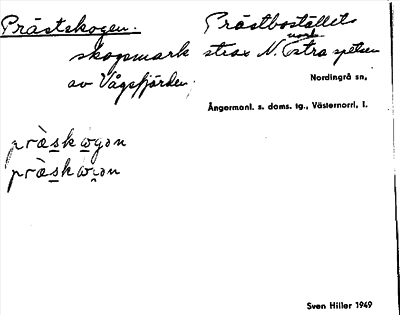 Prästskogen. Prästboställets
skogsmark strax N. Östra spetsen
nord-
av Vågsfjärden.
Nordingrå sn,
Ångermanl. s. doms. tg., Västernorrl. l.
pràskωgən
pràskωən
Sven Hiller 1949